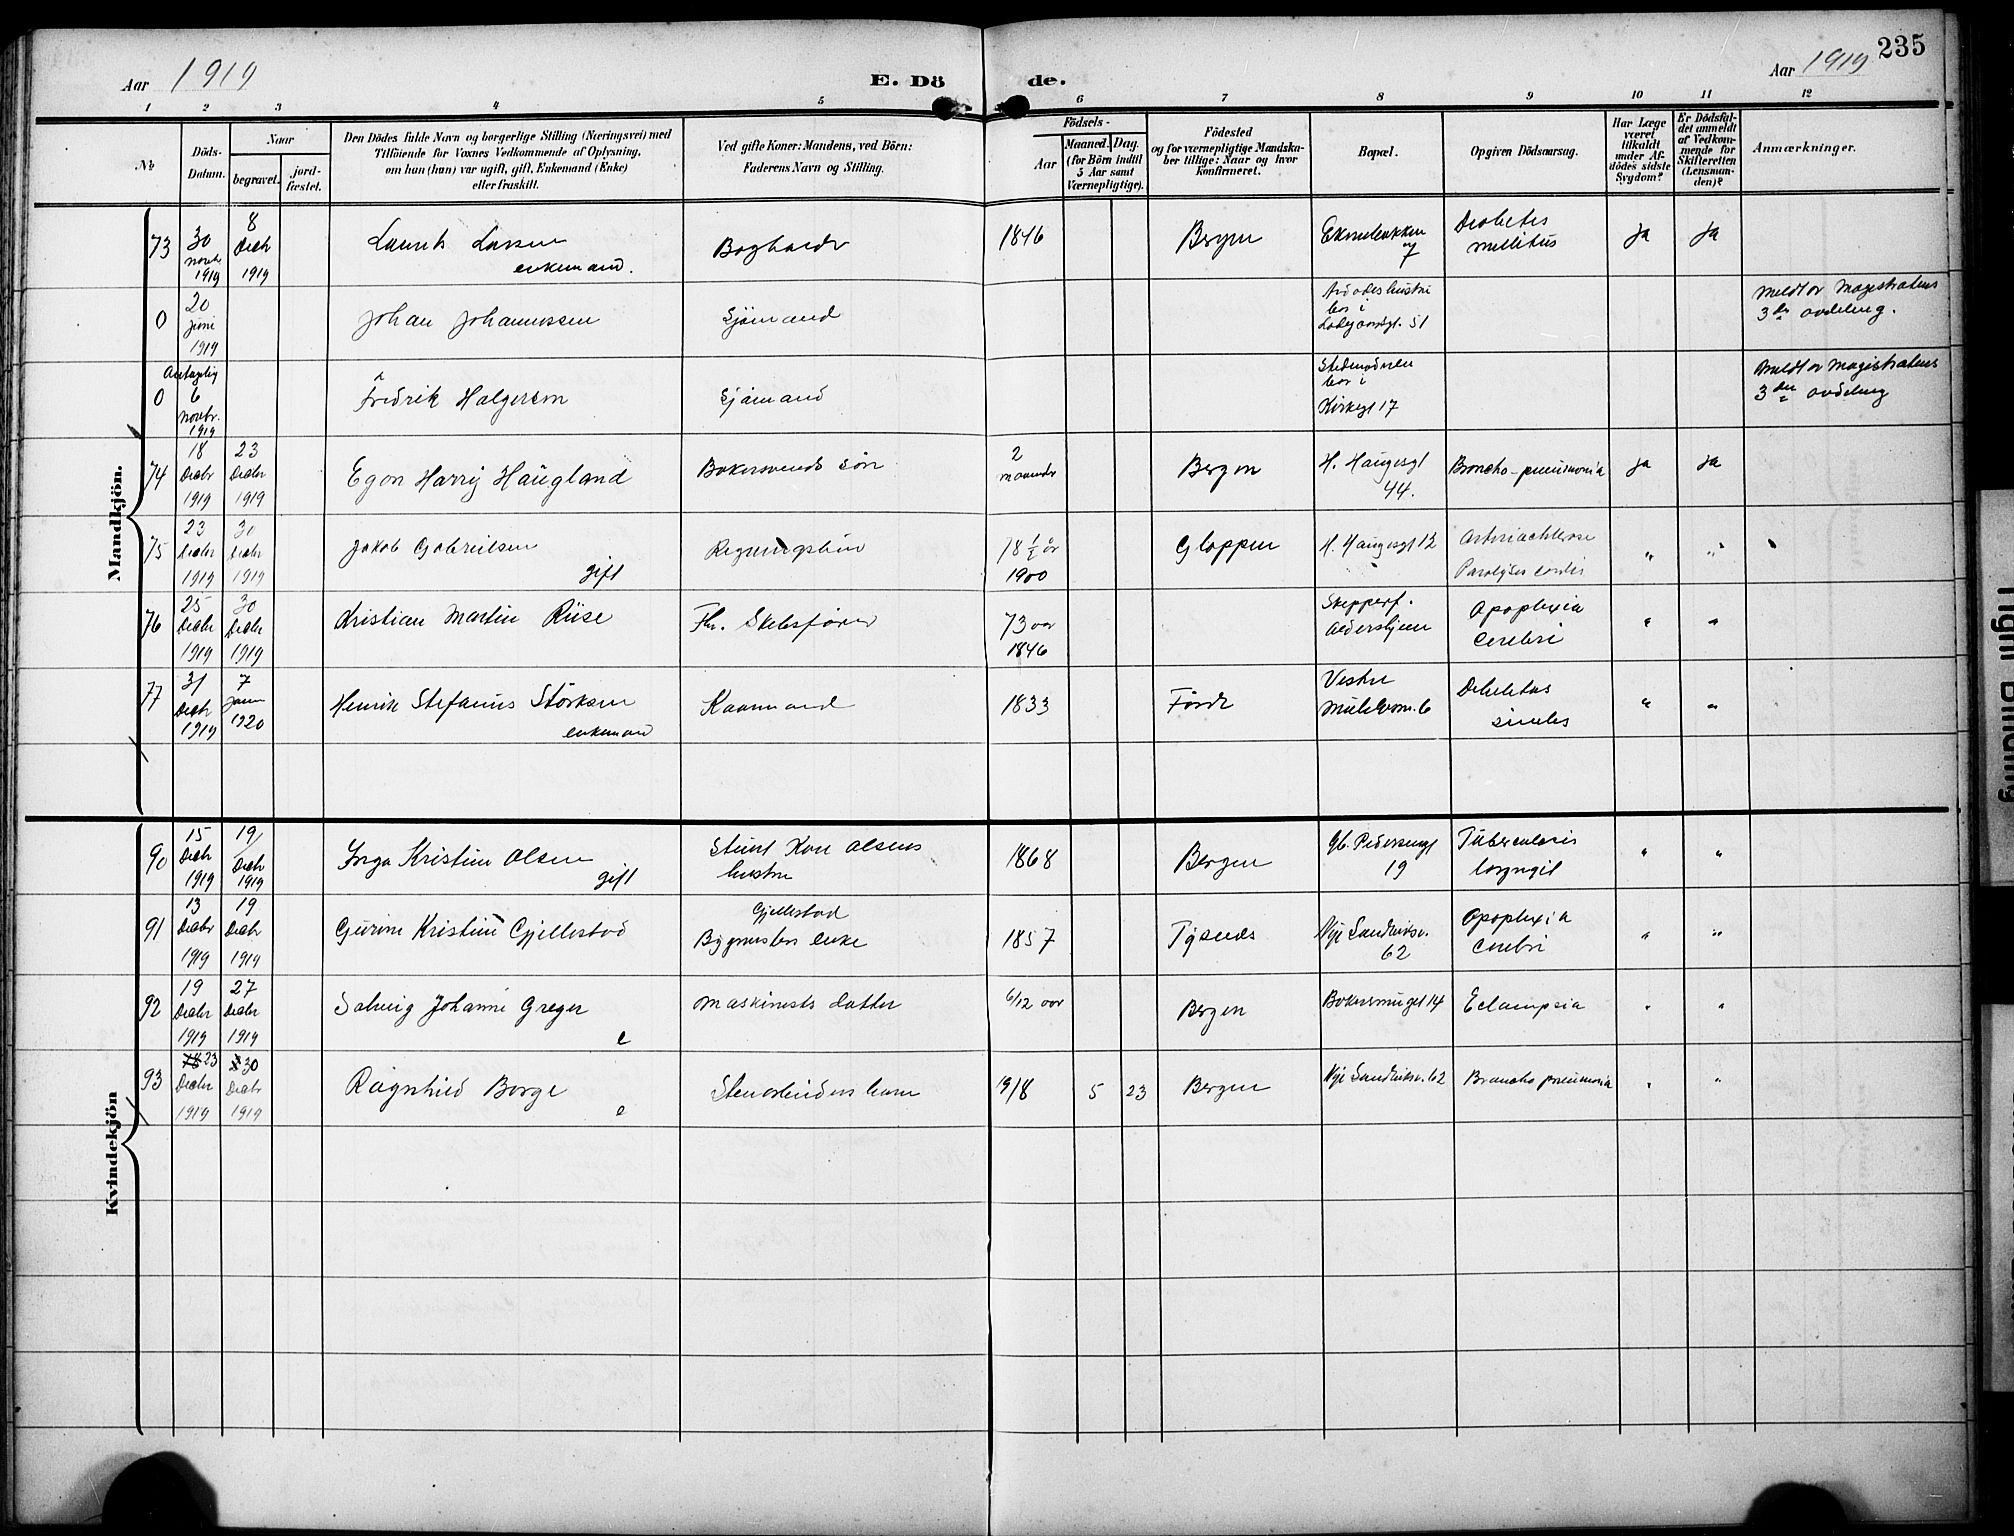 Aar 1919
E. Dö
de.
Aar 1919
235
1 2 3 4 5 6 7 8 9 10 11 12
№
Döds-
Datum.
Naar
begravet.
jord-
fæstet.
Den Dödes fulde Navn og borgerlige Stilling (Næringsvei) med
Tilföiende for Voxnes Vedkommende af Oplysning,
om han (hun) var ugift, gift, Enkemand (Enke)
eller fraskilt.
Ved gifte Koner: Mandens, ved Börn:
Faderens Navn og Stilling.
Födsels-
Aar
Maaned.
Dag.
(for Börn indtil
5 Aar samt
Værnepligtige).
Födested
og for værnepligtige Mandska-
ber tillige: Naar og hvor
konfirmeret.
Bopæl.
Opgiven Dödsaarsag.
Har Læge
været
tilkaldt
under Af-
dödes sidste
Sygdom?
Er Dödsfal-
det anmeldt
af Vedkom-
mende for
Skifteretten
(Lensman-
den)?
Anmærkninger.
Mandkjön.
73
30
1919
8
Decbr
1919
Laurits Larsen
enkemand.
1846
Bergen
7
Diabetes
mellitus
Ja
Ja
0
20
Juni
1919
Johan Johannessen
Sjömand
bor i
51
Meldt av Magistratens
3die avdeling.
Antagelig
0
6
Novbr.
1919
Fredrik Halgersen
Sjömand
bor i
Kirkegt 17
Meldt av Magistratens
3die avdeling
74
18
Decbr
1919
23
Decbr
1919
Egon Harry Haugland
Bakersvends sön
2
maaneder
Bergen
H. Haugesgt
44.
Broncho-pneumonia
ja
ja
75
23
Decbr
1919
30
Decbr
1919
Jakob Gabrielsen
gift
78 1/2 år
1900
Gloppen
H. Haugesgt 12
"
"
76
25
Decbr
1919
30
Decbr
1919
Kristian Martin Riise
Fhv. Skibsförer
73 aar
1846
Skipperf.
Aldershjem
Apoplexia
Cerebri
"
"
77
31
Decbr
1919
7
Janr
1920
Henrik Stefanus Störksen
enkemand
Kaarmand
1833
Förde
Vestre
6
Debilitas
senilis
"
"
Kvindekjön
90
15
Decbr
1919
19
Decbr
1919
Inga Kristine Olsen
gift
Olsens
hustru
1868
Bergen
19
Tuberculosis
laryngit
"
"
91
13
Decbr
1919
19
Decbr
1919
Gurine Kristine Gjellestad
Gjellestad
Bygmesters enke
1857
Tysnes
Nye Sandviksv.
62
Apoplexia
Cerebri
"
"
92
19
Decbr
1919
27
Decbr
1919
Solveig Johanne Greger
e
Maskinists datter
6/12 aar
Bergen
14
Eclampsia
"
"
93
23
Decbr
1919
30
Decbr
1919
Ragnhild Borge
e
Stenarbeiders barn
19/8
5
23
Bergen
Nye Sandviksv. 62
Broncho pneumonia
"
"